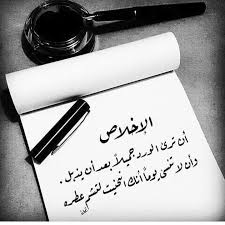 الإخلاص
أن ترى الورد جميلاً بعد أن يذبل .
وأن لا تنسى يوماً أنك انحنيت لتشم عطره